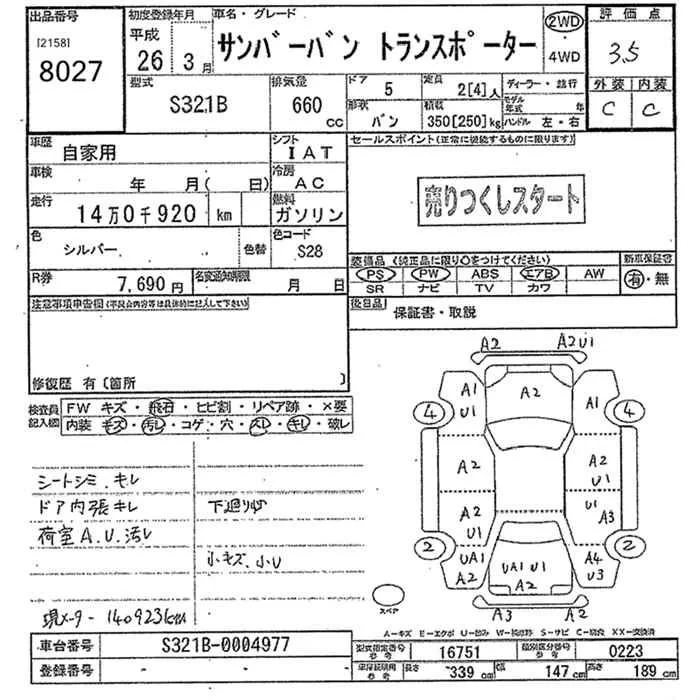 出品番号
[2158]
8027
初度登録年月
平成
26年 3月
車名・グレード
サンバーバン トランスポーター
2WD
・
4WD
評価点
3.5
外装 内装
C C
型式
S321B
排気量
660
cc
ドア
5
定員
2[4]人
形状
バン
積載
350[250]kg
ディーラー・並行
モデル年式 年
ハンドル 左・右
車歴
自家用
シフト
IAT
車検
年 月( 日)
冷房
AC
走行
14万0千920 km
燃料
ガソリン
色
シルバー
色替
色コード
S28
R券
7,690円
名変通知期限
月 日
セールスポイント(正常に機能するものに限ります)
売りつくしスタート
装備品 (純正品に限り○をつけてください)
PS PW ABS エアB AW
SR ナビ TV カワ
新車保証書
有・無
後日品
保証書・取説
注意事項申告欄(不具合内容等は具体的に記入して下さい)
修復歴 有〔箇所 〕
検査員記入欄
FW キズ・飛石・ヒビ割・リペア跡・×要
内装 キズ・汚レ・コゲ・穴・スレ・キレ・破レ
シートシミ、キレ
ドア内張キレ
荷室A.U.汚レ
下廻りサ
小キズ、小U
現メーター 140923km
A2
A2U1
A1
U1
A2
A1
4
4
A2
A2
U1
A2
U1
U1
A3
2
2
UA1
A2
UA1 U1
A2
A4
U3
A3
A2
スペア
A-キズ E-エクボ U-凹み W-補修跡 S-サビ C-腐食 XX-交換済
車台番号
S321B-0004977
登録番号
- - -
型式指定番号
参考
16751
類別区分番号
参考
0223
車庫証明用
参考
長さ
339cm
幅
147cm
高さ
189cm